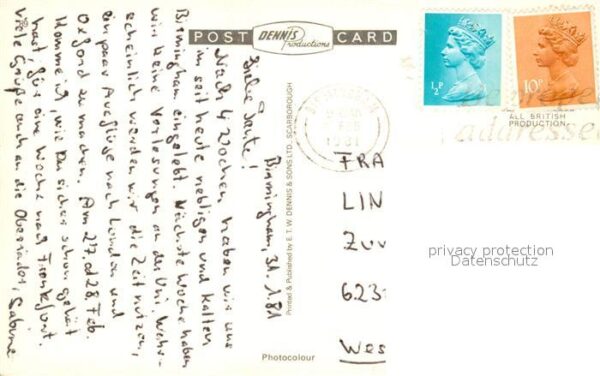 POST CARD
DENNIS
Productions
Liebe Tante!
Birmingham, 31. 1. 81
Nach 4 Wochen haben wir uns
im seit heute nebligen und kalten
Birmingham eingelebt. Nächste Woche haben
wir keine Vorlesungen an der Uni. Wahr-
scheinlich werden wir die Zeit nutzen,
ein paar Ausflüge nach London und
Oxford zu machen. Am 27. od 28. Feb.
komme ich, wie Du sicher schon gehört
hast, für eine Woche nach Frankfurt.
Viele Grüße auch an die Sabine
Printed & Published by E. T. W. DENNIS & SONS LTD., SCARBOROUGH
Photocolour
½P
10P
1981
addressed
ALL BRITISH
PRODUCTION
FRA
LIN
ZUV
623
Wes
privacy protection
Datenschutz